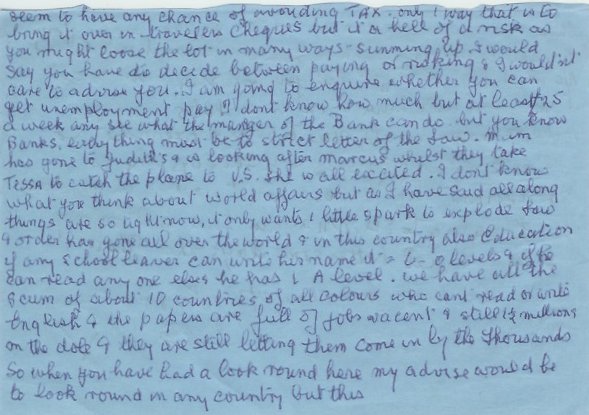 seem to have any chance of avoiding TAX. only 1 way that is to
bring it over in travelers cheques but it a hell of a risk as
you might loose the lot in many ways - summing up I would
say you have to decide between paying or risking & I wouldnt
care to advise you. I am going to enquire whether you can
get unemployment pay I dont know how much but at least £25
a week any see what the manger of the Bank can do but you know
Banks, every thing must be to strict letter of the law. Mum
has gone to Judith's & is looking after Marcus whilst they take
Tessa to catch the plane to U.S. she is all excited. I dont know
what you think about world affairs but as I have said all along
things are so tight now, it only wants 1 little spark to explode law
& order has gone all over the world & in this country also Education
if any school leaver can write his name it = 6 - 0 levels & if he
can read any one elses he has 1 A level. we have all the
scum of about 10 countries of all colours who cant read or write
English & the papers are full of jobs vacent & still 1½ millions
on the dole & they are still letting them come in by the thousands
So when you have had a look round here my advise would be
to look round in any country but this